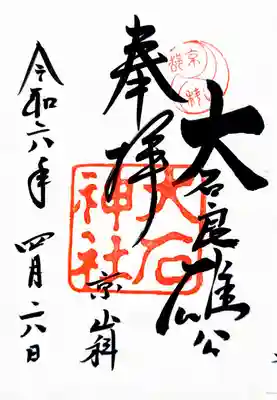 大石良雄公
奉拝
大石神社
京山科
令和六年 四月二八日